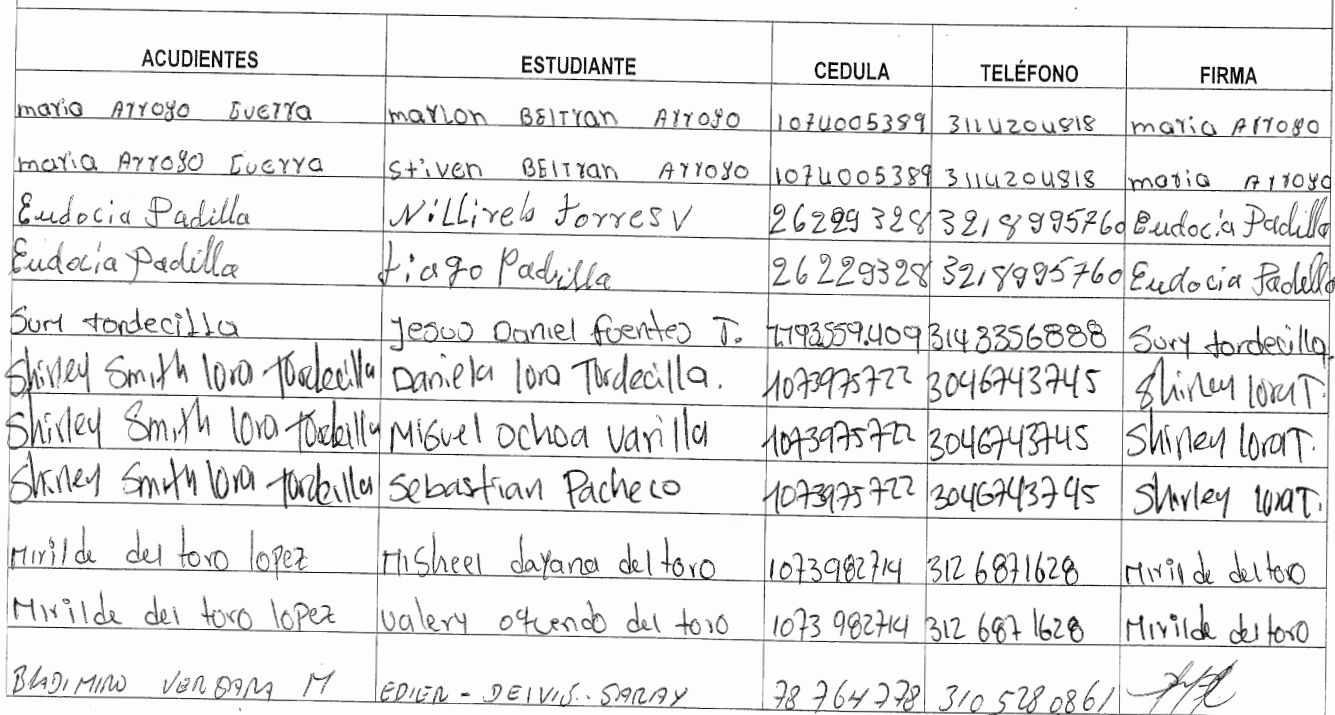 ACUDIENTES ESTUDIANTE CEDULA TELÉFONO FIRMA
maria Arroyo Guerra marlon BElTran Arroyo 1074005389 3114204818 maria Arroyo
maria Arroyo Guerra Stiven BElTran Arroyo 1074005389 3114204818 maria Arroyo
Eudocia Padilla Nillireb Torres V 26299328 3218995760 Eudocia Padilla
Eudocia Padilla tiago Padilla 26229328 3218995760 Eudocia Padella
Sury tordecilla Jesus Daniel fuentes T. 31433356888 Sury tordecilla.
Shirley Smith lora Tordecilla Daniela lora Tordecilla. 1073975722 3046743745 Shirley lora T.
Shirley Smith lora tordecilla Miguel Ochoa Varilla 1073975722 3046743745 Shirley lora T.
Shirley Smith lora tordecilla Sebastian Pacheco 1073975722 3046743745 Shirley lora T.
Mirilde del toro lopez Misheel dayana del toro 1073982714 312 6871628 Mirilde del toro
Mirilde del toro lopez valery oquendo del toro 1073 982714 312 687 1628 Mirilde del toro
BLADIMIRO VERGARA M EDIER - DEIVIS - SARAY 78 764 778 310 528 0861